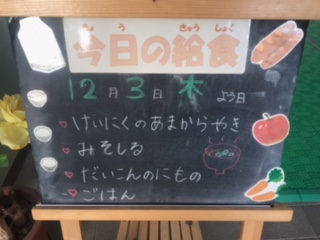 きょう きゅうしょく
今日の給食
12月3日 木よう日
けいにくのあまからやき
みそしる
だいこんのにもの
ごはん